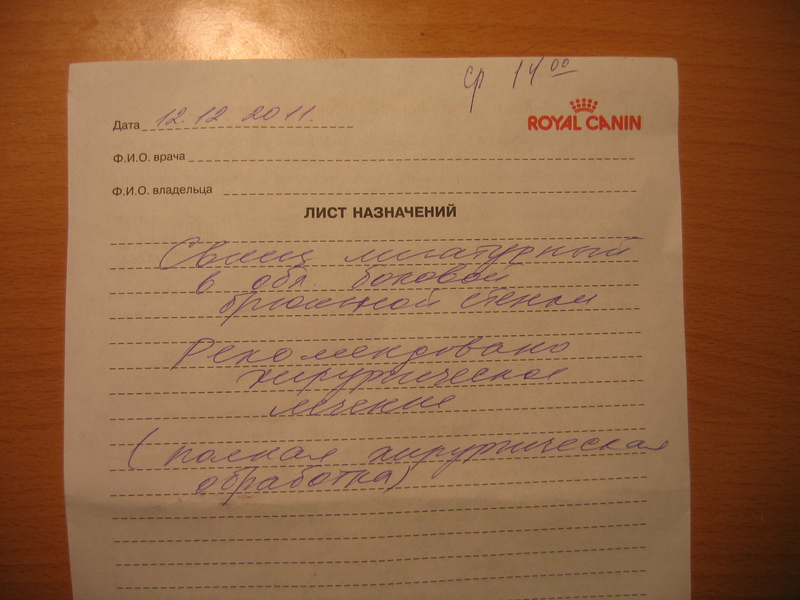 ср 14 00
Дата 12.12.2011.
ROYAL CANIN
Ф.И.О. врача
Ф.И.О. владельца
ЛИСТ НАЗНАЧЕНИЙ
Свищ лигатурный
в обл. боковой
брюшной стенки
Рекомендовано
хирургическое
лечение
(полная хирургическая
обработка)